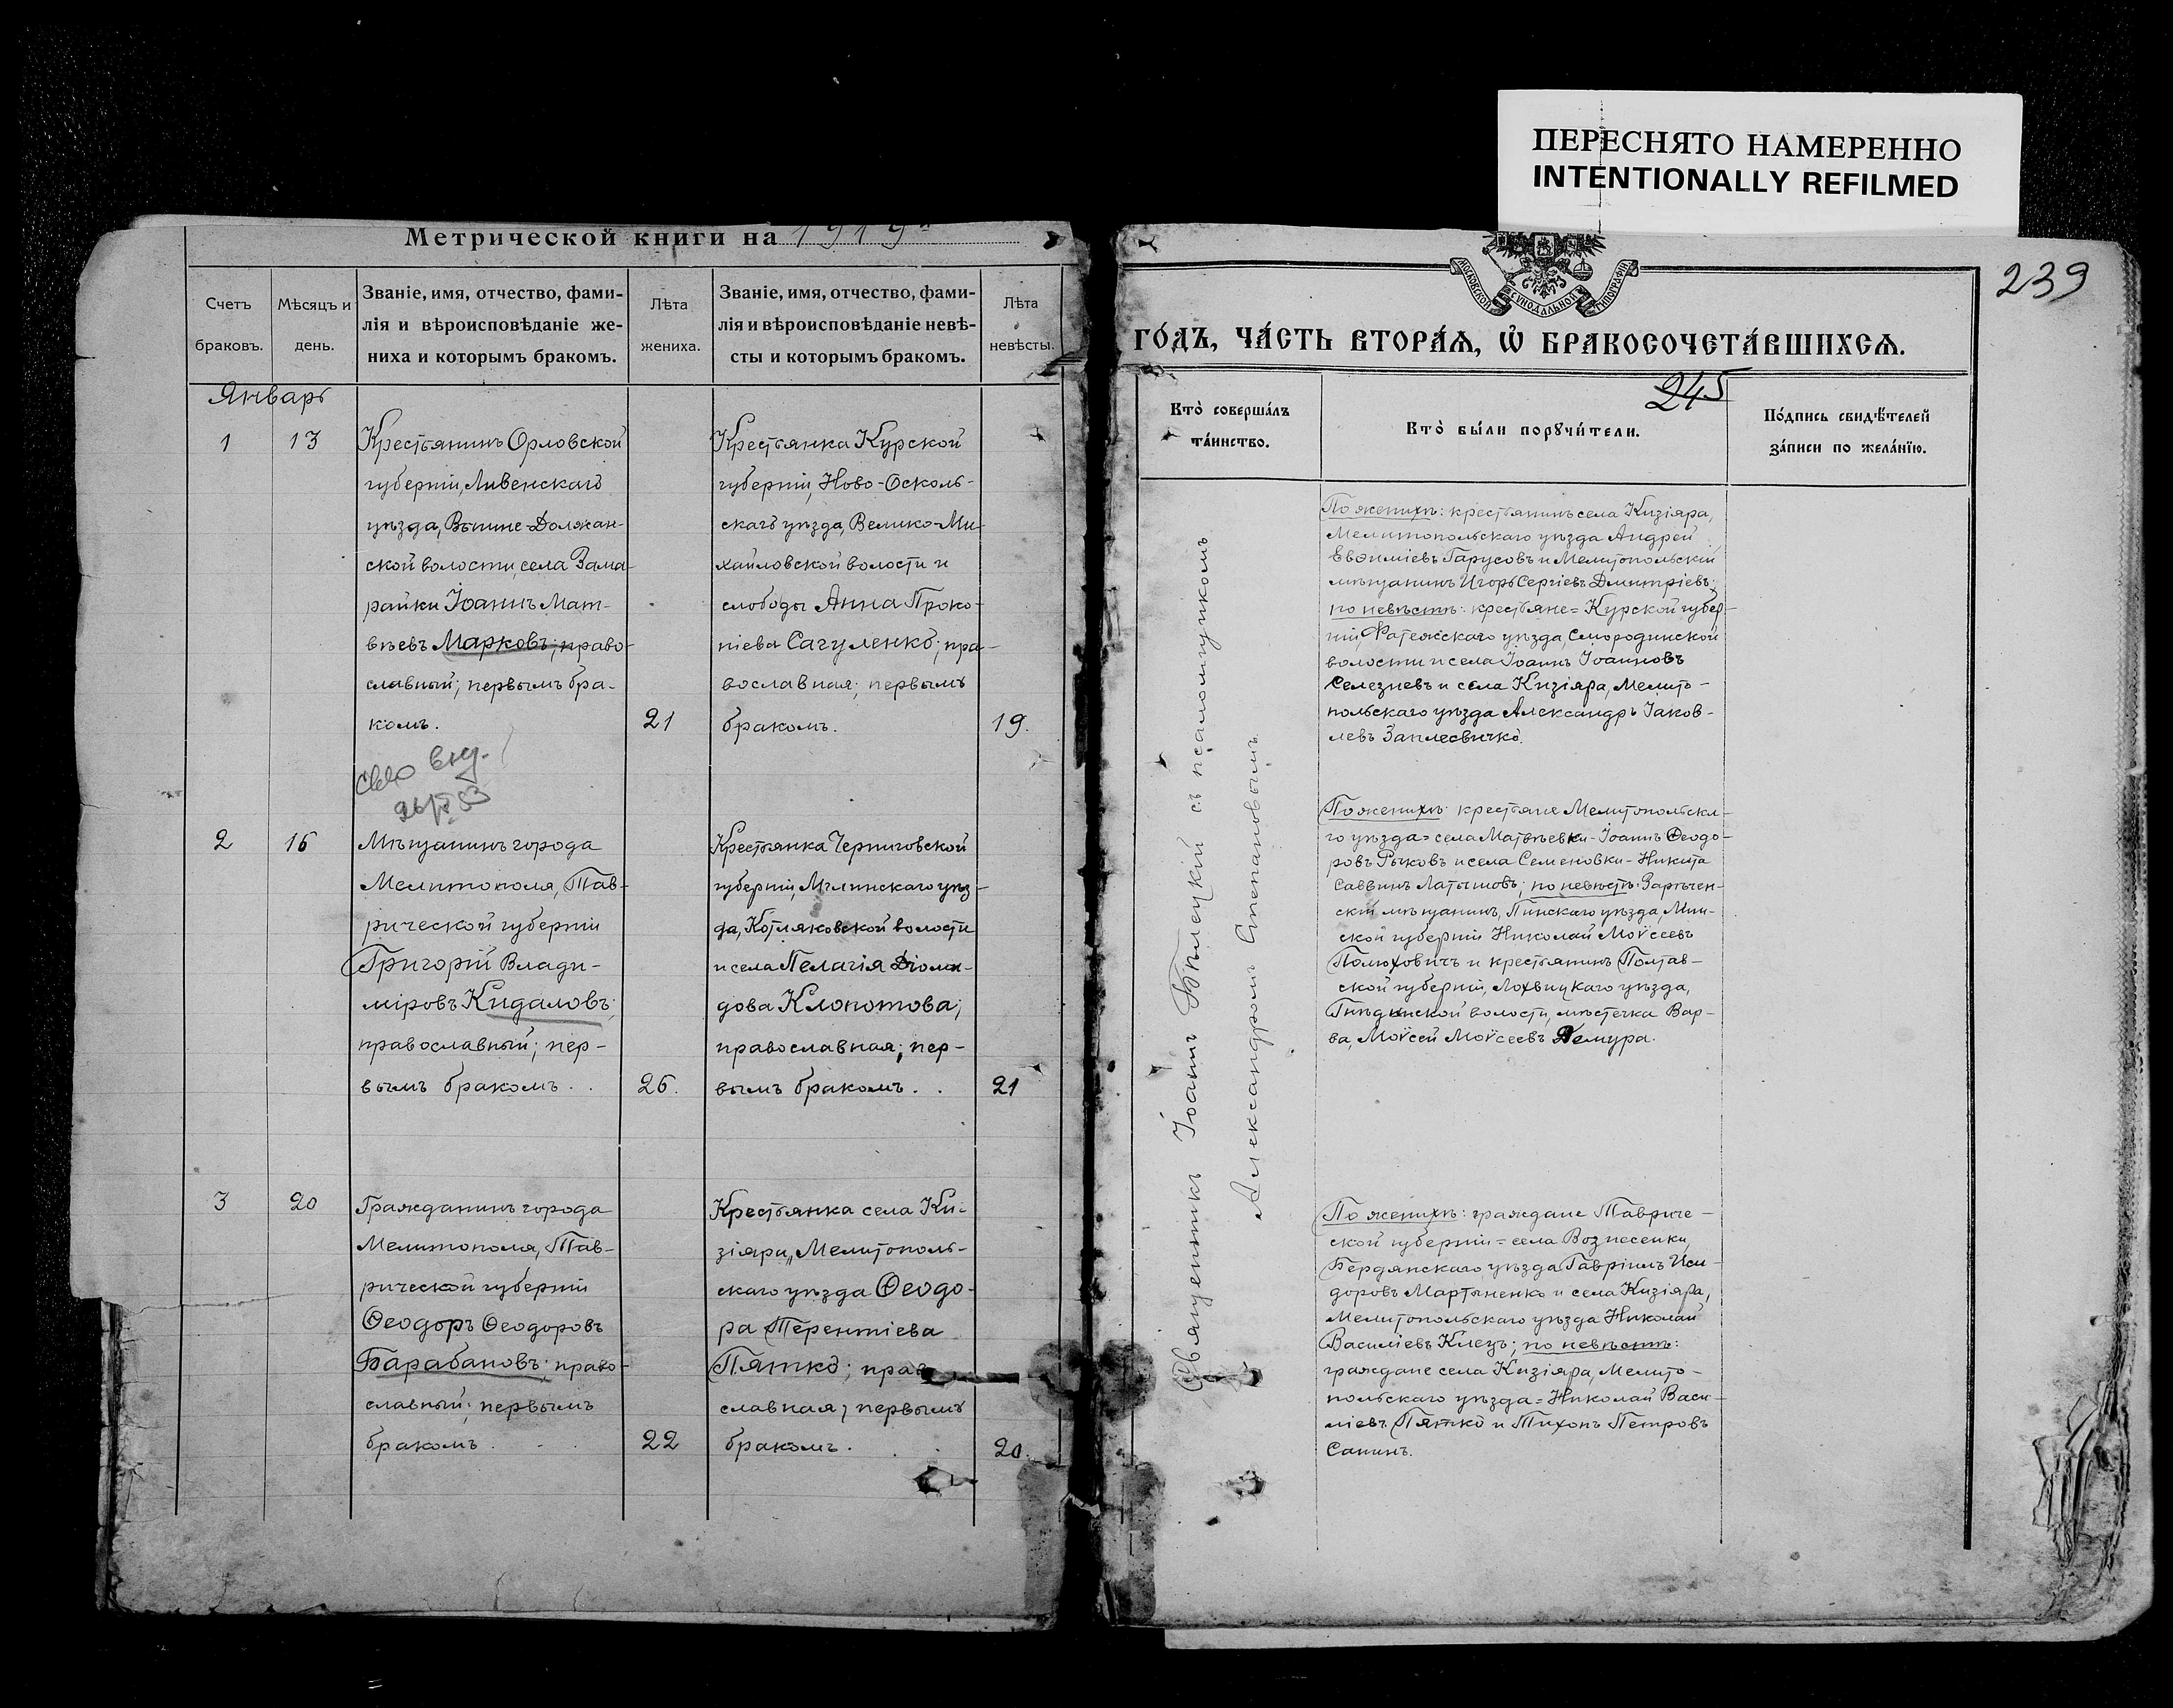 ПЕРЕСНЯТО НАМЕРЕННО
INTENTIONALLY REFILMED
Метрической книги на 1919
Счетъ
браковъ.
Мѣсяцъ и
день.
Званіе, имя, отчество, фами-
лія и вѣроисповѣданіе же-
ниха и которымъ бракомъ.
Лѣта
жениха.
Званіе, имя, отчество, фами-
лія и вѣроисповѣданіе невѣ-
сты и которымъ бракомъ.
Лѣта
невѣсты.
Январь
1
13
Крестьянинъ Орловской
губерніи, Ливенскаго
уѣзда, Вышне-Должан-
ской волости, села Зама-
райки Іоаннъ Мат-
вѣевъ Марковъ; право-
славный; первымъ бра-
комъ.
21
Крестьянка Курской
губерніи, Ново-Осколь-
скаго уѣзда, Велико-Ми-
хайловской волости и
слободы Анна Проко-
піева Сагуленко; пра-
вославная; первымъ
бракомъ.
19.
2
16
Мѣщанинъ города
Мелитополя, Тав-
рической губерніи
Григорій Влади-
міровъ Кидаловъ;
православный; пер-
вымъ бракомъ . .
26.
Крестьянка Черниговской
губерніи, Мглинскаго уѣз-
да, Котляковской волости
и села Пелагія Діоми-
дова Клопотова;
православная; пер-
вымъ бракомъ . .
21
3
20
Гражданинъ города
Мелитополя, Тав-
рической губерніи
Ѳеодоръ Ѳеодоровъ
Барабановъ; право-
славный; первымъ
бракомъ . . .
22
Крестьянка села Ки-
зіяра, Мелитополь-
скаго уѣзда Ѳеодо-
ра Терентіева
Пятко; прав
славная; первымъ
бракомъ . . .
20.
239
МОСКОВСКОЙ СѴНОДАЛЬНОЙ ТИПОГРАФІИ
ГО́ДЪ, ЧА́СТЬ ВТОРА́Ѧ, Ѽ БРАКОСОЧЕТА́ВШИХСѦ.
245
Кто̀ соверша́лъ
та́инство.
Кто̀ бы́ли порꙋчи́тели.
По́дпись свидѣ́телей
за́писи по жела́нїю.
Священникъ Іоаннъ Бѣлецкій съ псаломщикомъ
Александромъ Степановымъ.
По женихѣ: крестьянинъ села Кизіяра,
Мелитопольскаго уѣзда Андрей
Евѳиміевъ Гарусовъ и Мелитопольскій
мѣщанинъ Игорь Сергіевъ Дмитріевъ;
по невѣстѣ: крестьяне = Курской губер-
ніи, Фатежскаго уѣзда, Смородинской
волости и села Іоаннъ Іоанновъ
Селезневъ и села Кизіяра, Мелито-
польскаго уѣзда Александръ Іаков-
левъ Заплесвичко.
По женихѣ: крестьяне Мелитопольска-
го уѣзда = села Матвѣевки - Іоаннъ Ѳеодо-
ровъ Рычковъ и села Семеновки - Никита
Саввинъ Латышовъ; по невѣстѣ: Зарѣчен-
скій мѣщанинъ, Пинскаго уѣзда, Мин-
ской губерніи Николай Моѵсеевъ
Полюховичъ и крестьянинъ Полтав-
ской губерніи, Лохвицкаго уѣзда,
Гнѣдинской волости, мѣстечка Вар-
ва, Моѵсей Моѵсеевъ Демура.
По женихѣ: граждане Тавриче-
ской губерніи = села Вознесенки,
Бердянскаго уѣзда Гавріилъ Иси-
доровъ Мартыненко и села Кизіяра,
Мелитопольскаго уѣзда Николай
Василіевъ Клецъ; по невѣстѣ:
граждане села Кизіяра, Мелито-
польскаго уѣзда = Николай Васи-
ліевъ Пятко и Тихонъ Петровъ
Санинъ.